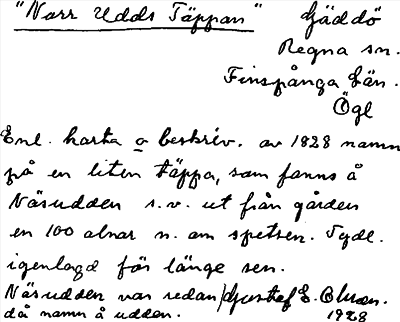 "Norr Udds Täppan" Gäddö
Regna sn.
Finspånga län.
Ögl
Enl. karta o beskriv. av 1828 namn
på en liten täppa, som fanns å
Näsudden s.v. ut från gården
en 100 alnar n. om spetsen. Tydl.
igenlagd för länge sen.
Näsudden var redan / Gustaf E. Olsson.
då namn å udden. 1928